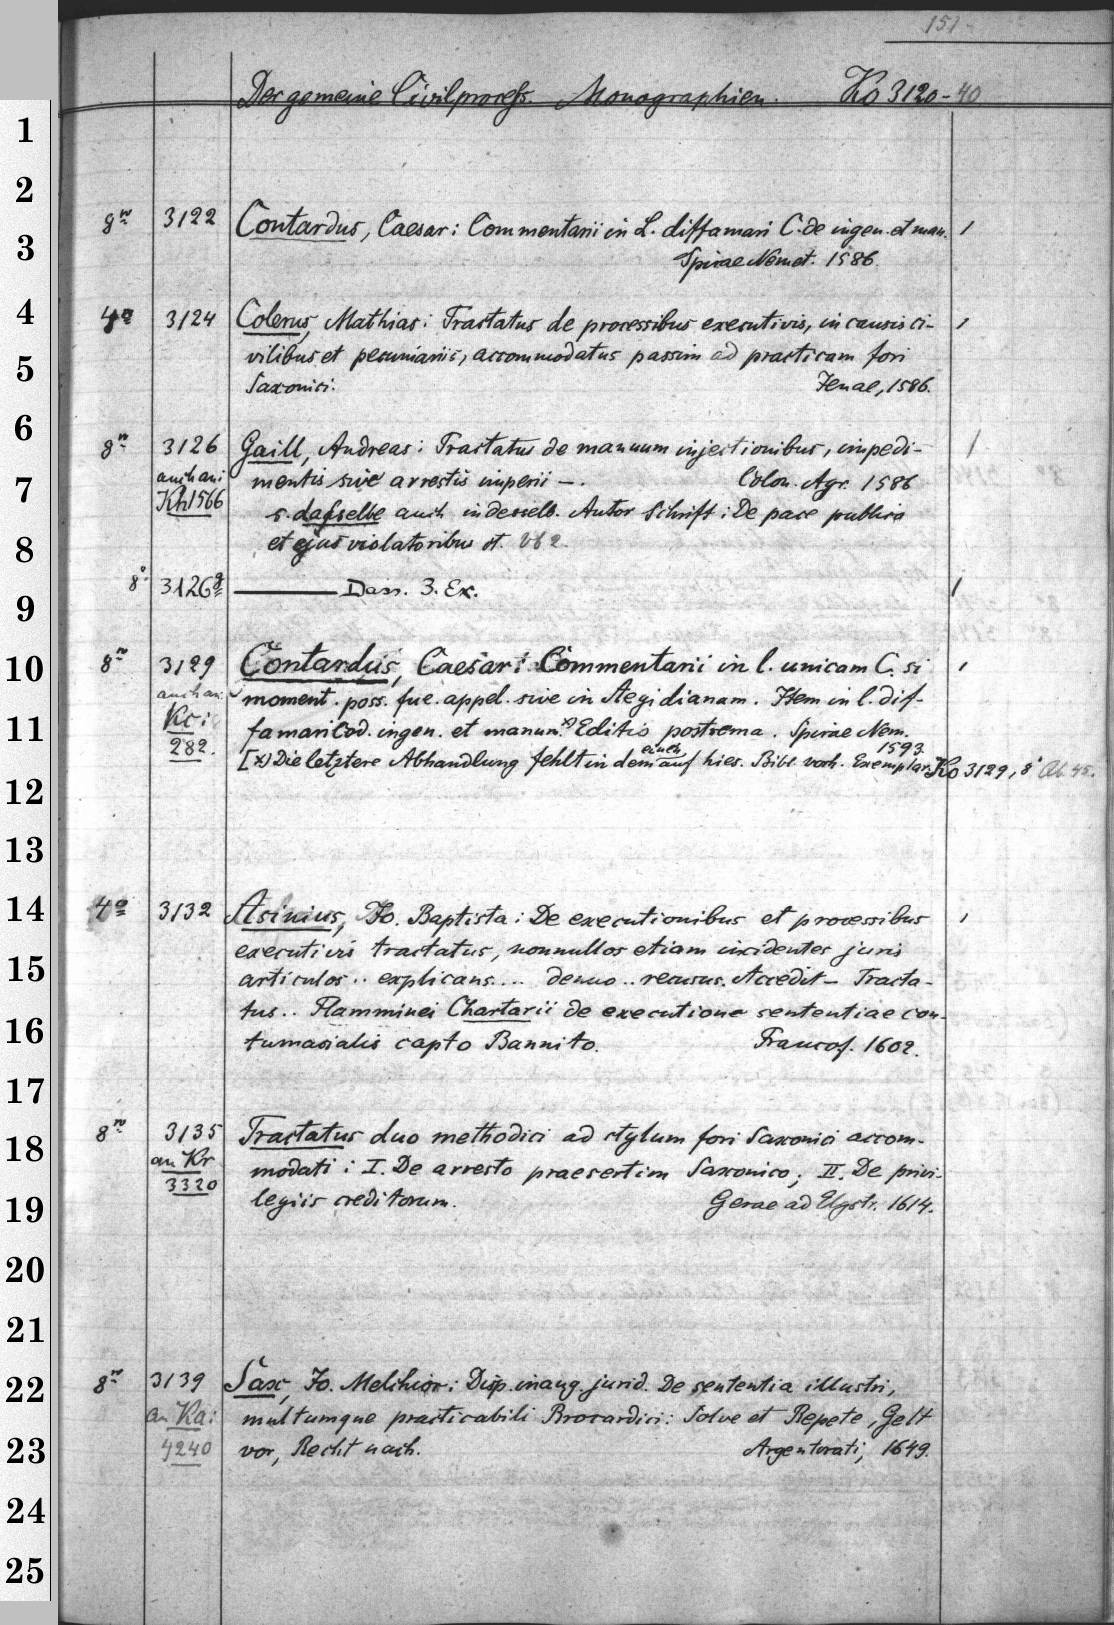 151
Der gemeine Civilprocess. Monographien. Ko 3120-40
1
2
8º 3122 Contardus, Caesar: Commentarii in L. diffamari C. de ingen. et man. 1
3
Spirae Nemet. 1586.
4
4º 3124 Colerus, Mathias: Tractatus de processibus executivis, in causis ci-
5
vilibus et pecuniariis, accommodatus passim ad practicam fori
Saxonici. Jenae, 1586.
6
8º 3126 Gaill, Andreas: Tractatus de manuum injectionibus, impedi- 1
auch an: mentis sive arrestis imperii —. Colon. Agr. 1586
7
Kh 1566 s. dasselbe auch in desselb. Autor Schrift: De pace publica
8
et ejus violatoribus st.
8º 3126g ——— Dass. 3. Ex. 1
9
10
8º 3129 Contardus, Caesar: Commentarii in l. unicam C. si
auch an: moment. poss. fue. appel. sive in Aegidianam. Item in l. dif-
11
Kc: famari Cod. ingen. et manum.x) Editio postrema. Spirae Nem.
1593.
282. [x) Die letztere Abhandlung fehlt in dem auch auf hies. Bibl. vorh. Exemplar Ko 3129, 8º
12
13
14
4º 3132 Asinius, Jo. Baptista: De executionibus et processibus
executivis tractatus, nonnullos etiam incidentes juris
15
articulos .. explicans.... denuo .. recusus. Accedit — Tracta-
tus .. Flamminei Chartarii de executione sententiae con-
16
tumacialis capto Bannito. Francof. 1602.
17
8º 3135 Tractatus duo methodici ad stylum fori Saxonici accom-
18
an Kr modati: I. De arresto praesertim Saxonico; II. De privi-
3320
19
legiis creditorum. Gerae ad Elystr. 1614.
20
21
22
8º 3139 Sax, Jo. Melchior: Disp. inaug. jurid. De sententia illustri,
an Ka: multumque practicabili Brocardici: Solve et Repete, Gelt
23
4240 vor, Recht nach. Argentorati, 1649.
24
25